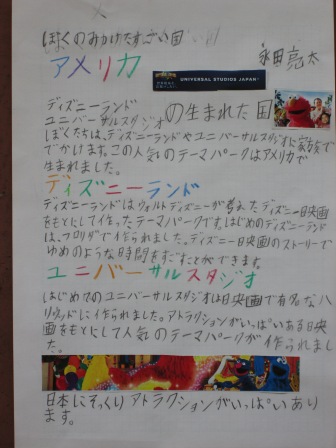 ぼくのみかけたすごい国
永田亮太
アメリカ
UNIVERSAL STUDIOS JAPAN
ディズニーランド
ユニバーサルスタジオ
の生まれた国
ぼくたちは、ディズニーランドやユニバーサルスタジオに家族で
でかけます。この人気のテーマパークはアメリカで
生まれました。
ディズニーランド
ディズニーランドはウォルトディズニーが考えたディズニー映画
をもとにして作ったテーマパークです。はじめのディズニーランド
は、フロリダで作られました。ディズニー映画のストーリーで
ゆめのような時間をすごすことができます。
ユニバーサルスタジオ
はじめてのユニバーサルスタジオは映画で有名なハ
リウッドに作られました。アトラクションがいっぱいある映
画をもとにして人気のテーマパークが作られまし
た。
日本にそっくりアトラクションがいっぱいあり
ます。